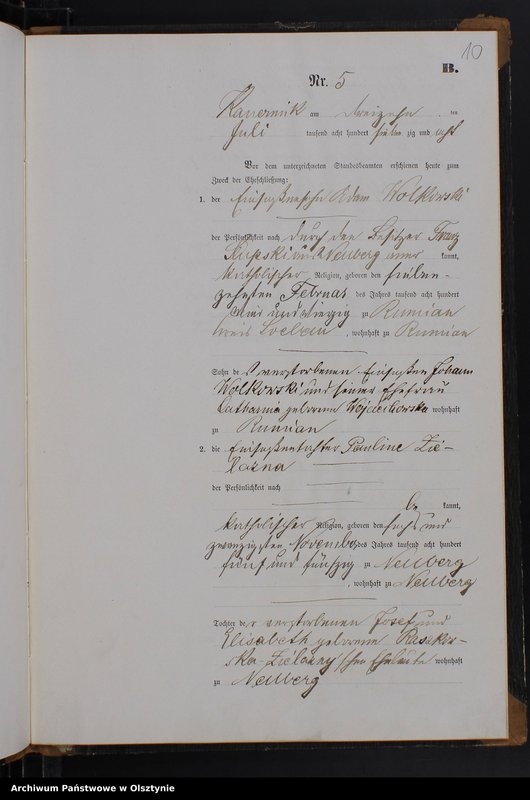 10
B.
Nr. 5
Kauernik am dreizehn ten
Juli tausend acht hundert sieben zig und acht
Vor dem unterzeichneten Standesbeamten erschienen heute zum
Zweck der Eheschließung:
1. der Einsaßensohn Adam Wolkowski
der Persönlichkeit nach durch den Besitzer Franz
Neuberg kannt,
katholischer Religion, geboren den sieben-
zehnten Februar des Jahres tausend acht hundert
und vierzig zu Rumian
Kreis Loebau, wohnhaft zu Rumian
Sohn des verstorbenen Einsaßen Johann
Wolkowski und seiner Ehefrau
Catharina geborene Wojciechowska wohnhaft
zu Rumian
2. die Einsaßentochter Pauline Zie-
lozna
der Persönlichkeit nach
be kannt,
katholischer Religion, geboren den sechs und
zwanzigsten November des Jahres tausend acht hundert
fünf und fünfzig zu Neuberg
, wohnhaft zu Neuberg
Tochter der verstorbenen Josef und
Elisabeth geborene Raszkow-
ska Zielozny'schen Eheleute wohnhaft
zu Neuberg
Archiwum Państwowe w Olsztynie